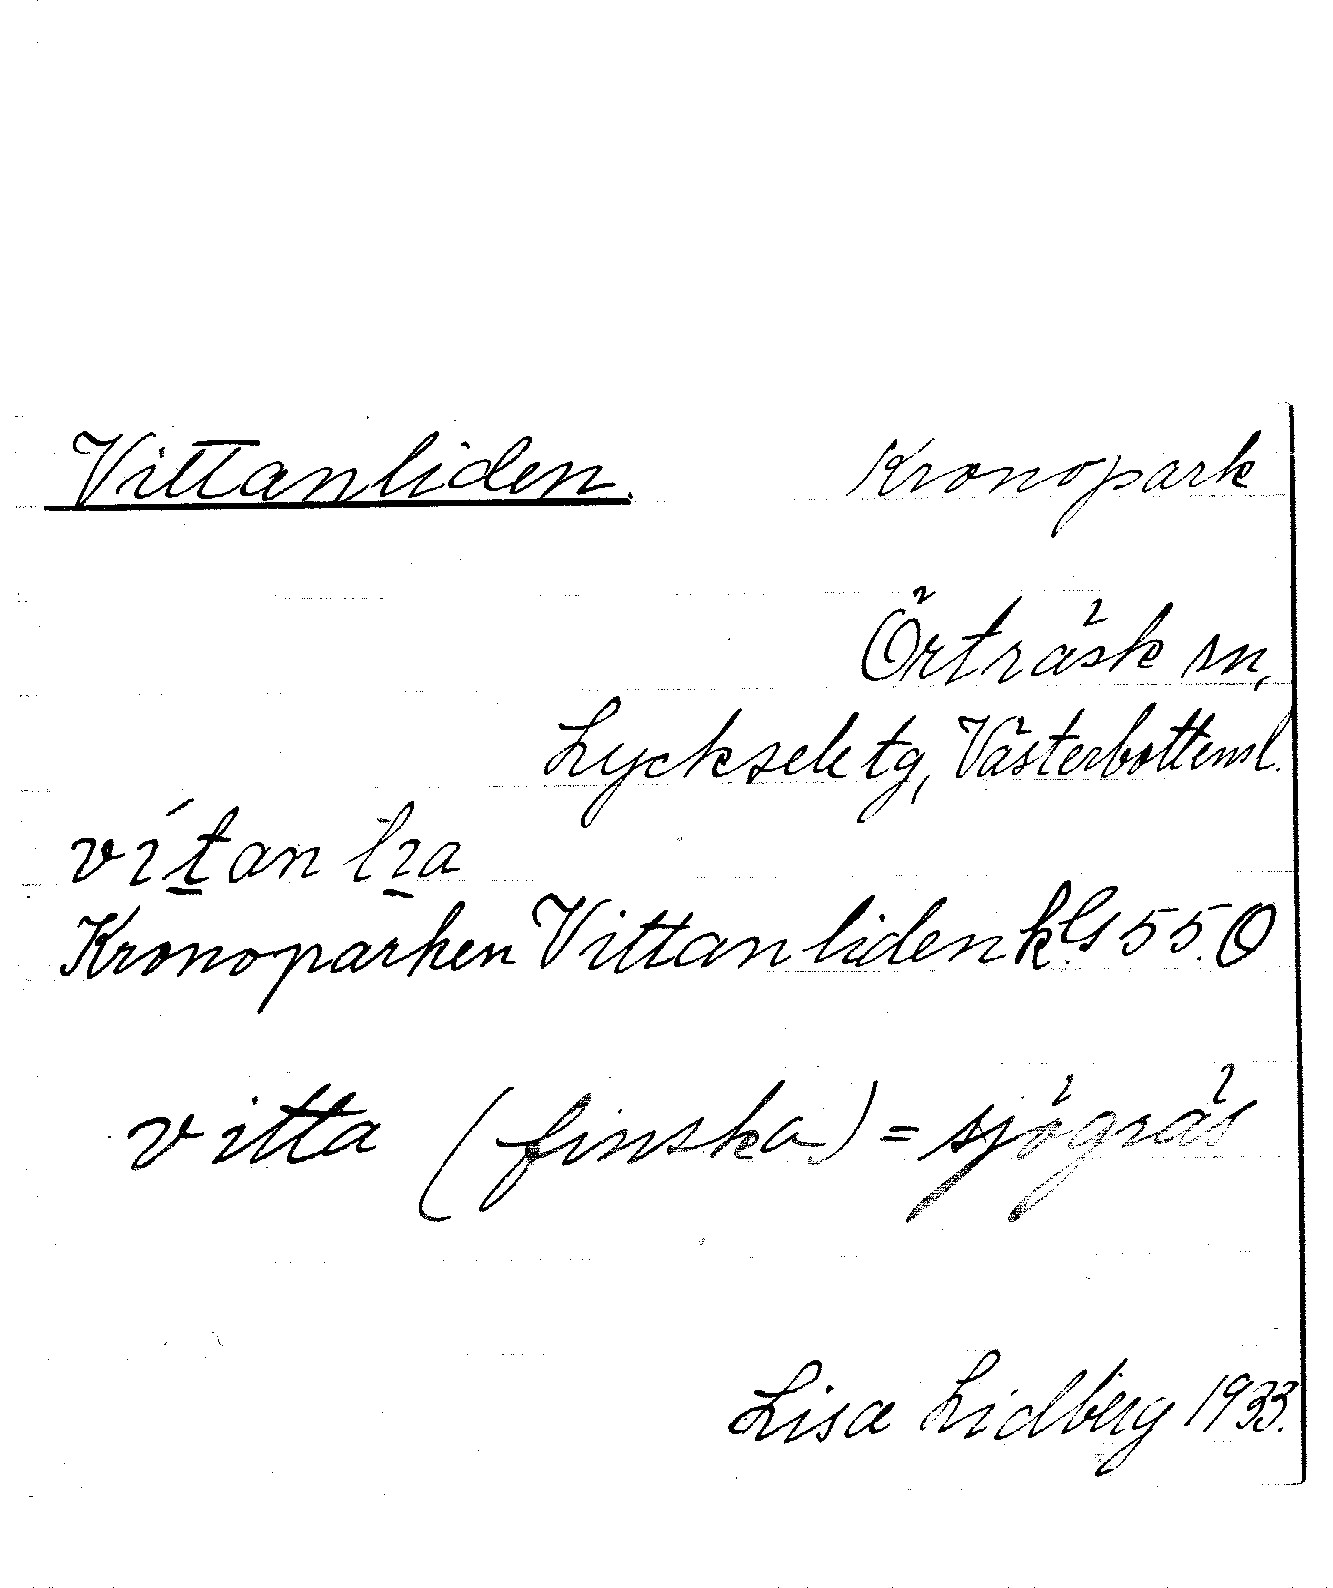 Vittanliden. Kronopark
Örträsk sn,
Lycksele tg, Västerbottensl.
vítan lıa
Kronoparken Vittanliden kls 55. O
vitta (finska) = sjögräs
Lisa Lidberg 1933.